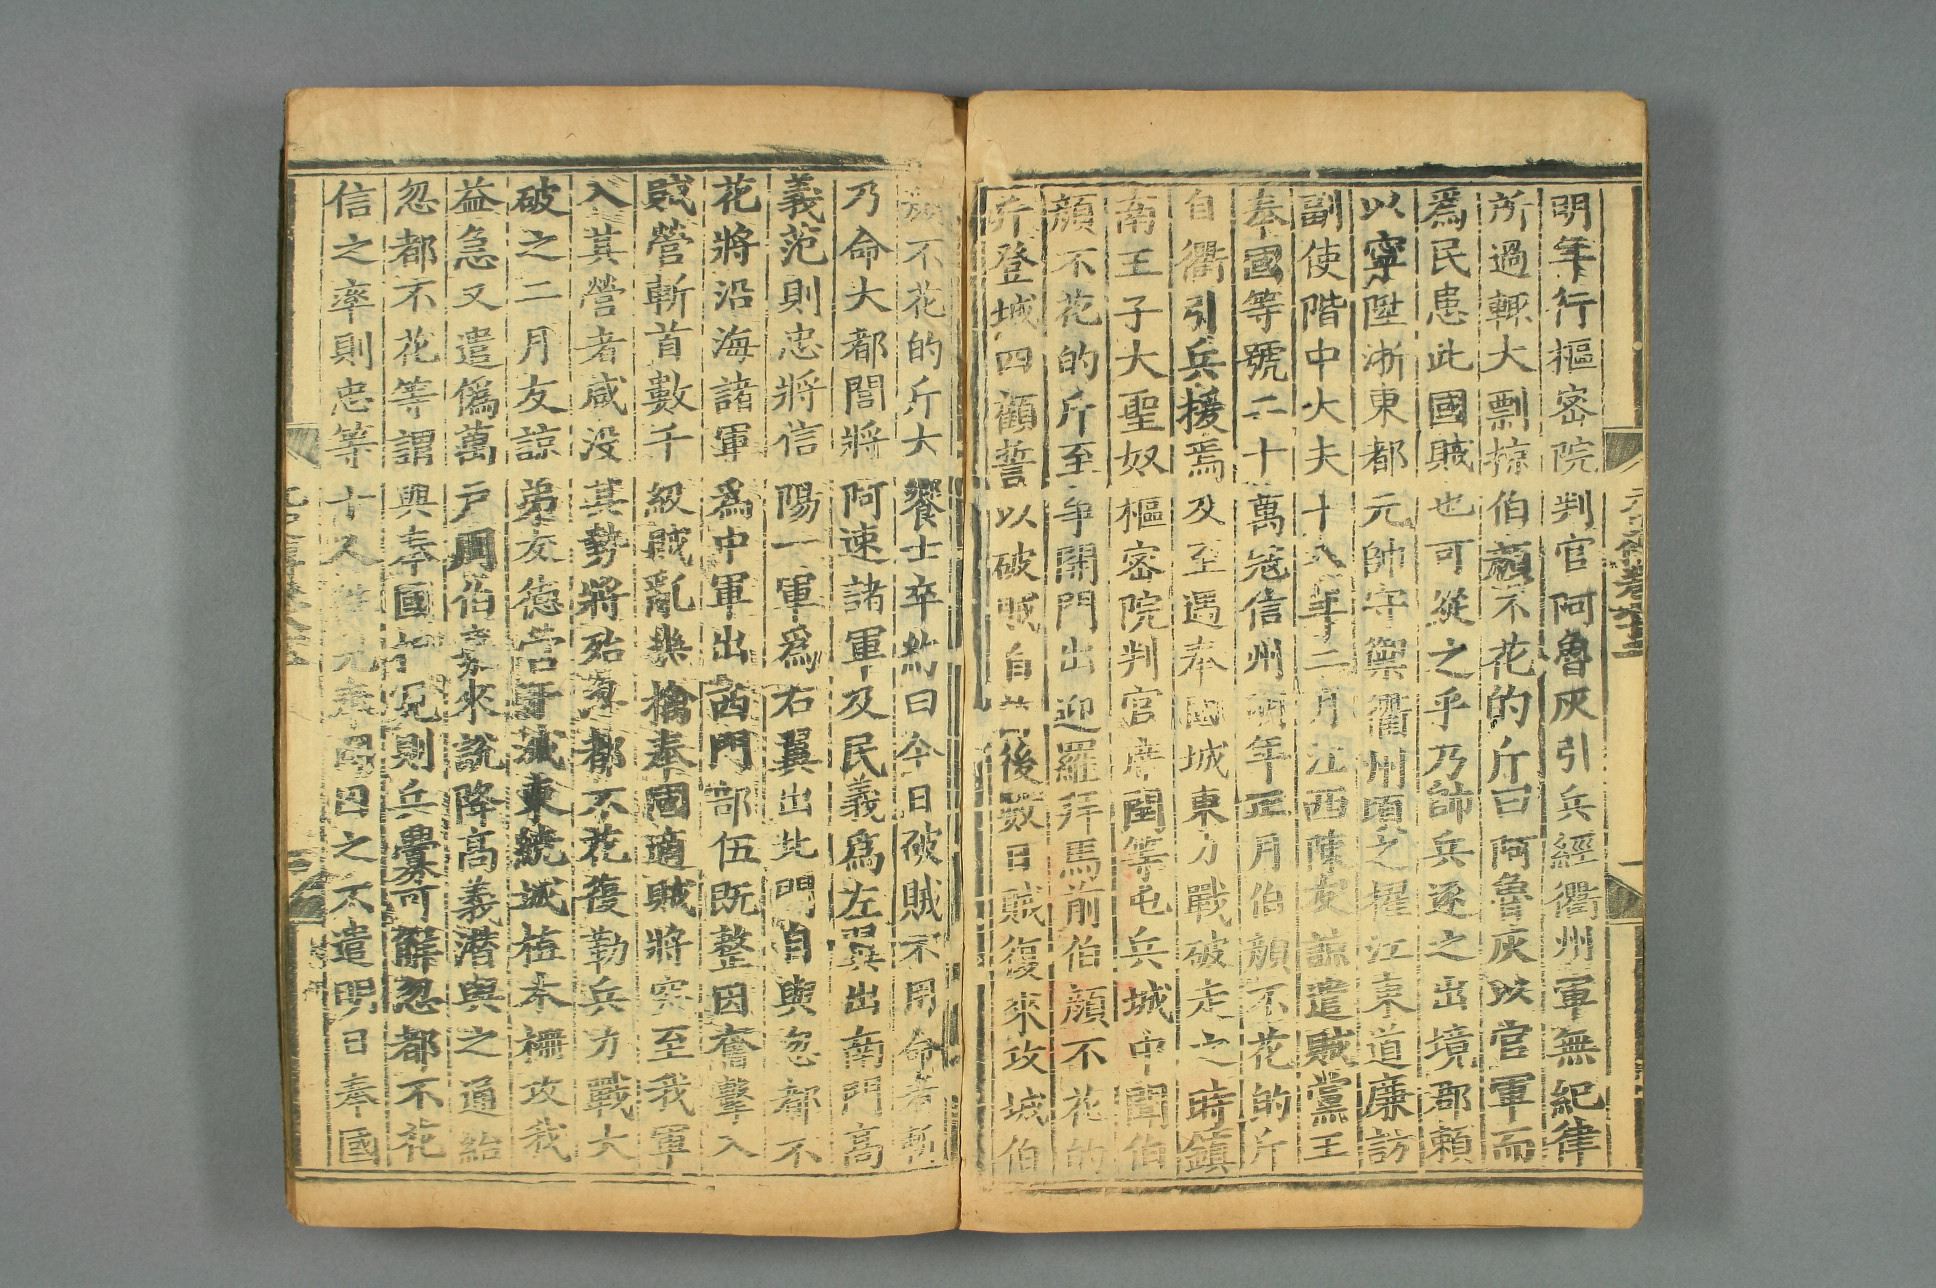 明年行樞密院判官阿魯灰引兵經衢州軍無紀律
所過輒大剽掠伯顏不花的斤曰阿魯灰以官軍而
爲民患此國賊也可從之乎乃帥兵逐之出境郡賴
以寧陞浙東都元帥守禦衢州頃之擢江東道廉訪
副使階中大夫十八年二月江西陳友諒遣賊黨王
奉國等號二十萬寇信州明年正月伯顏不花的斤
自衢引兵援焉及至遇奉國城東力戰破走之時鎮
南王子大聖奴樞密院判官席閏等屯兵城中聞伯
顏不花的斤至爭開門出迎羅拜馬前伯顏不花的
斤登城四顧誓以破賊自許後數日賊復來攻城伯
顏不花的斤大饗士卒約曰今日破賊不用命者斬
乃命大都閭將阿速諸軍及民義爲左翼出南門高
義范則忠將信陽一軍爲右翼出北門自與忽都不
花將沿海諸軍爲中軍出西門部伍旣整因奮擊入
賊營斬首數千級賊亂幾擒奉國適賊將突至我軍
入其營者咸没其勢將殆忽都不花復勒兵力戰大
破之二月友諒弟友德營于城東繞城植木柵攻我
益急又遣僞萬戶周伯嘉來說降高義潛與之通紿
忽都不花等謂與奉國相見則兵釁可解忽都不花
信之率則忠等十人往見奉國囚之不遣明日奉國